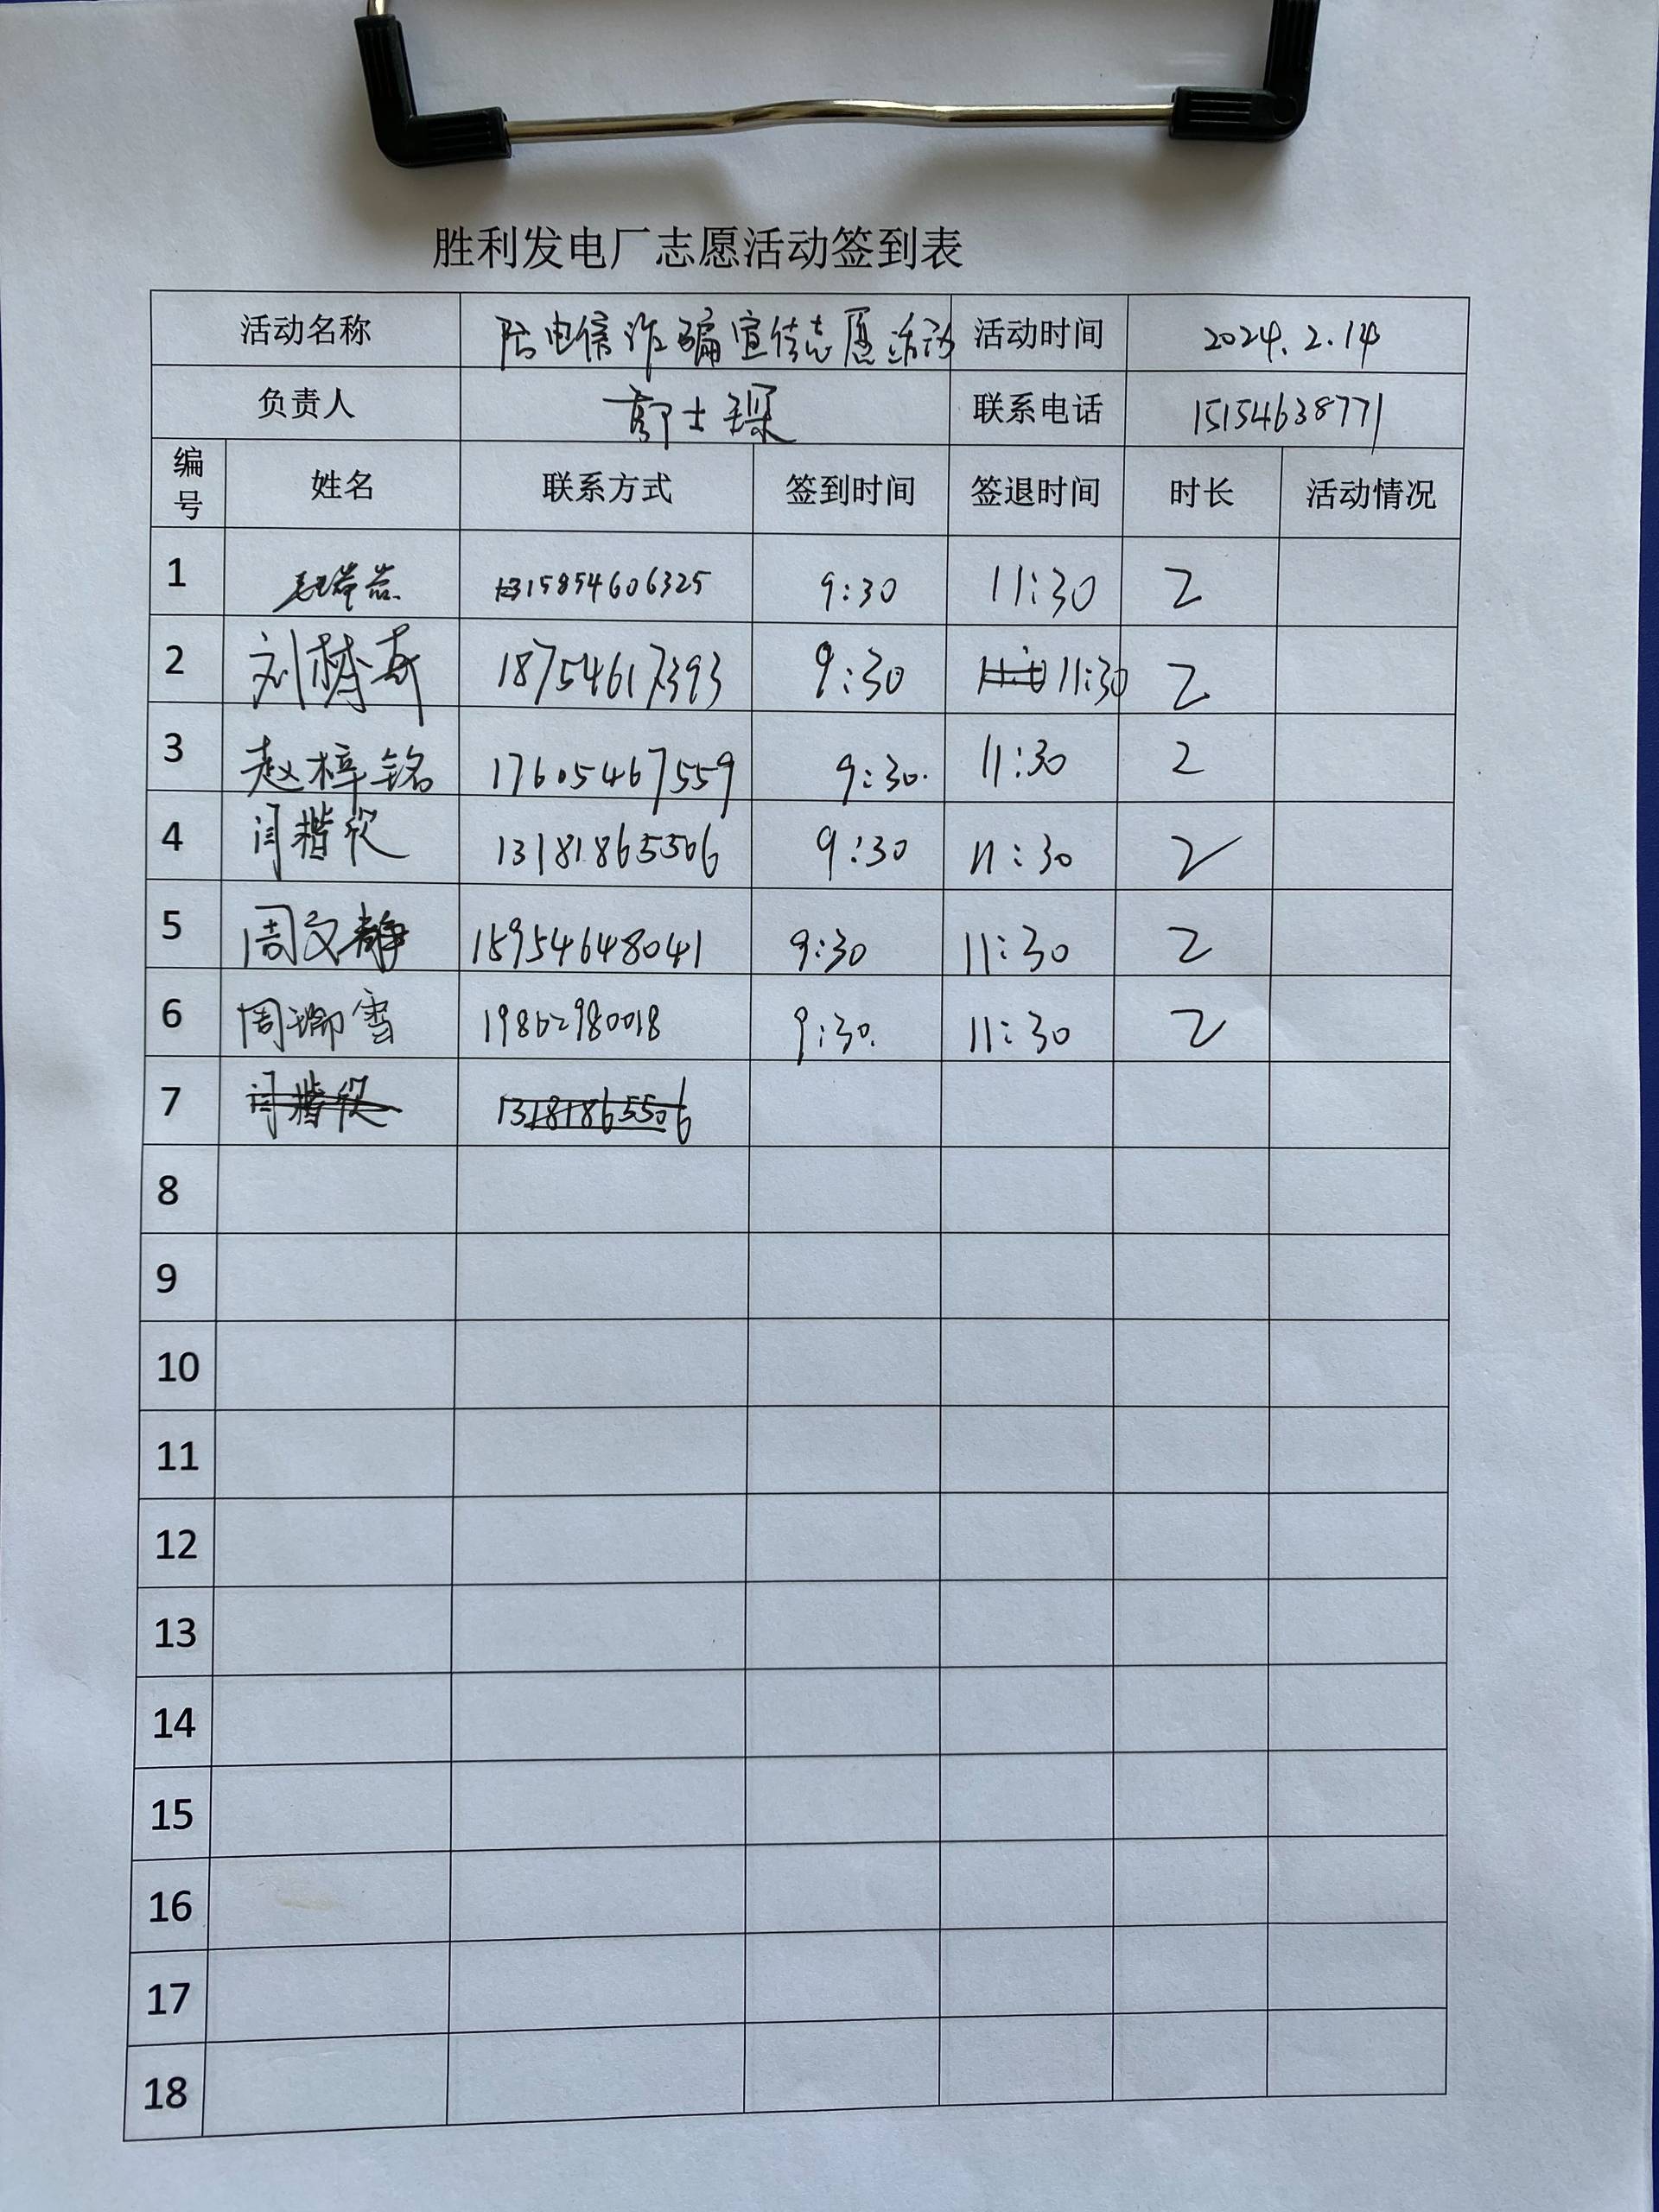 胜利发电厂志愿活动签到表
活动名称 防电信诈骗宣传志愿活动 活动时间 2024.2.14
负责人 郭士琛 联系电话 15154638771
编号 姓名 联系方式 签到时间 签退时间 时长 活动情况
1 15854606325 9:30 11:30 2
2 刘树奇 18754617393 9:30 11:30 2
3 赵梓铭 17605467559 9:30. 11:30 2
4 闫楷欣 13181865506 9:30 11:30 2
5 周文静 15954648041 9:30 11:30 2
6 周瑞雪 19862980018 9:30. 11:30 2
7 闫楷欣 13181865506
8
9
10
11
12
13
14
15
16
17
18